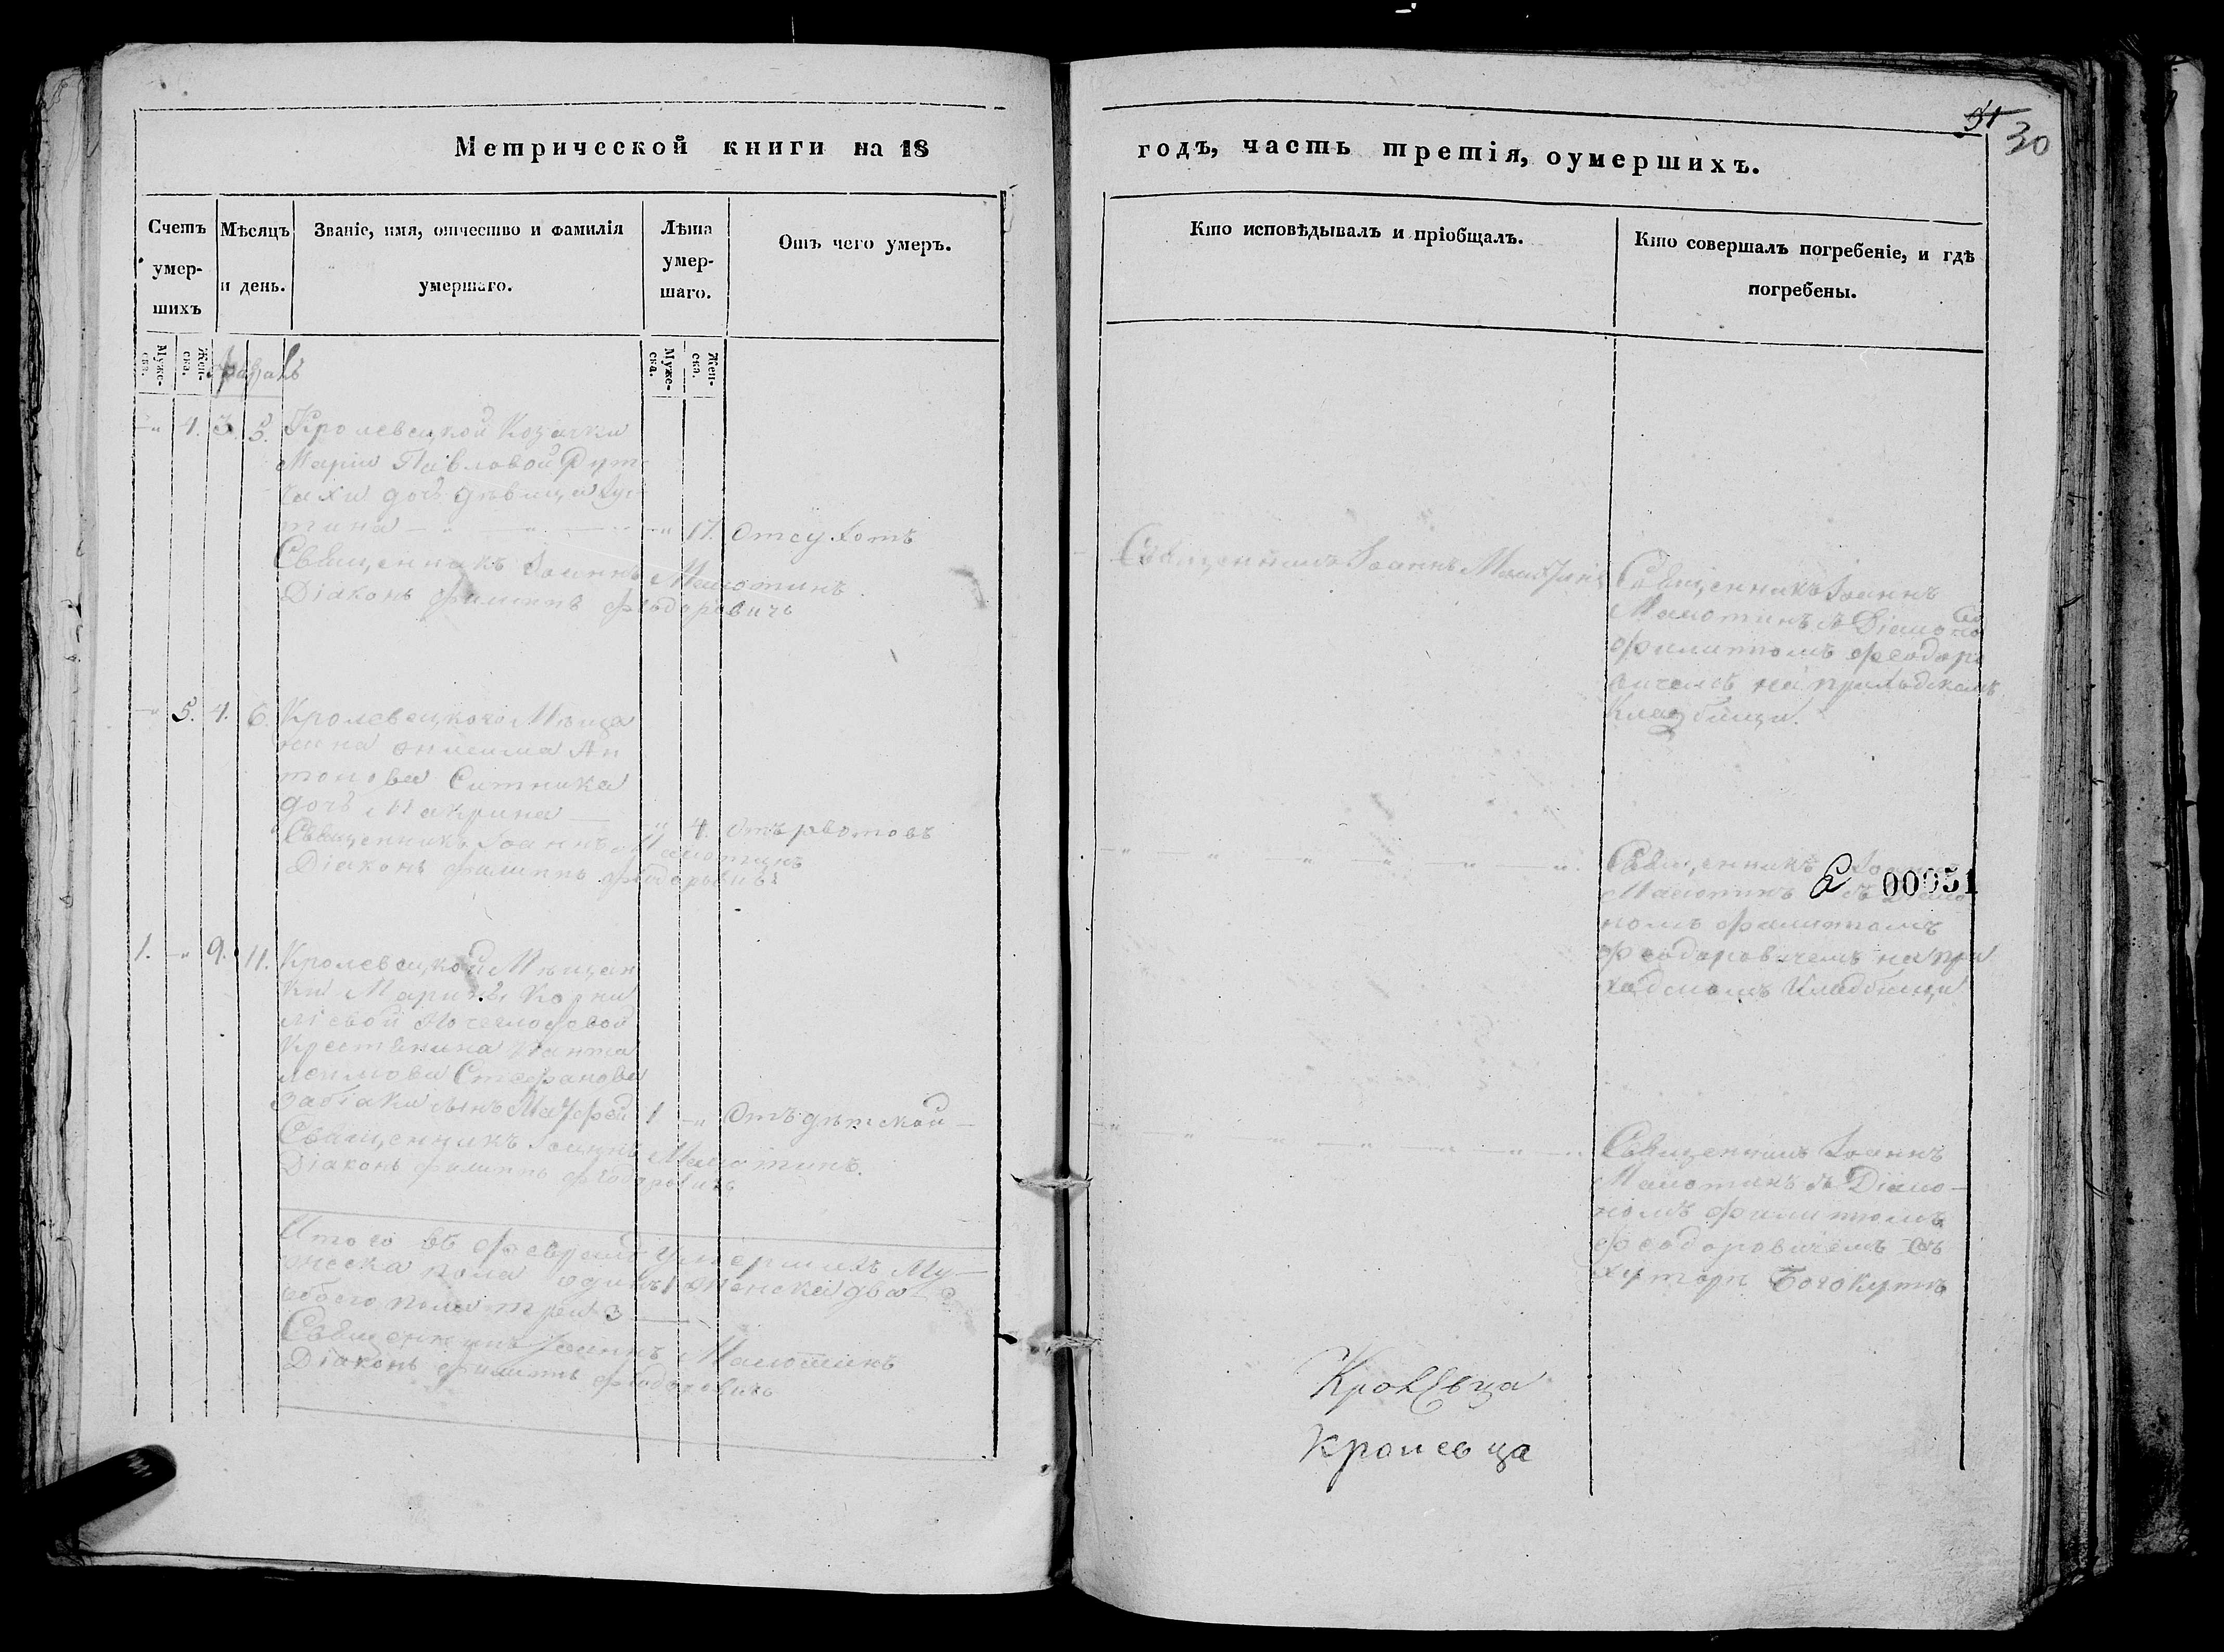 Метрической книги на 18
годъ, часть третія, о умершихъ.
31
30
Счетъ умер-шихъ
Мѣсяцъ и день.
Званіе, имя, отчество и фамилія умершаго.
Лѣта умер-шаго.
Отъ чего умеръ.
Кто исповѣдывалъ и пріобщалъ.
Кто совершалъ погребеніе, и гдѣ погребены.
Муже-ска.
Жен-ска.
Муже-ска.
Жен-ска.
4. 3. 5. Кролевецкой Козачки
Маріи Павловой
дочь дѣвица
17. Отсухотъ
Священникъ Іоаннъ Малютинъ
Діаконъ Филиппъ Феодоровичъ
Священникъ Іоаннъ Малютинъ
Священникъ Іоаннъ
Малютинъ съ Діако
Филиппомъ Феодоро
вичемъ на приходскомъ
кладбищи.
5. 4. 6. Кролевецкого Мѣща
нина Онисима Ан
тонова Ситника
дочь Макрина
4. Отъ рвотовъ
Священникъ Іоаннъ Малютинъ
Діаконъ Филиппъ Феодоровичъ
Священникъ
Малютинъ
номъ Филиппомъ
Феодоровичемъ на при
ходскомъ кладбищи
00051
1. 9. 11. Кролевецкой Мѣщан
ки Марины Корни
ліевой
Крестянина Панта
леимова Стефанова
Забіаки сынъ
1 Отъ дѣтской
Священникъ Іоаннъ Малютинъ.
Діаконъ Филиппъ Феодоровичъ
Священникъ Іоаннъ
Малютинъ съ Діако
номъ Филиппомъ
Феодоровичемъ въ
хуторѣ
Итого въ Феврале умершихъ Му
жеска пола одинъ 1 женска два 2
обоего пола три 3
Священникъ Іоаннъ Малютинъ
Діаконъ Филиппъ Феодоровичъ
Кролевца
Кролевца